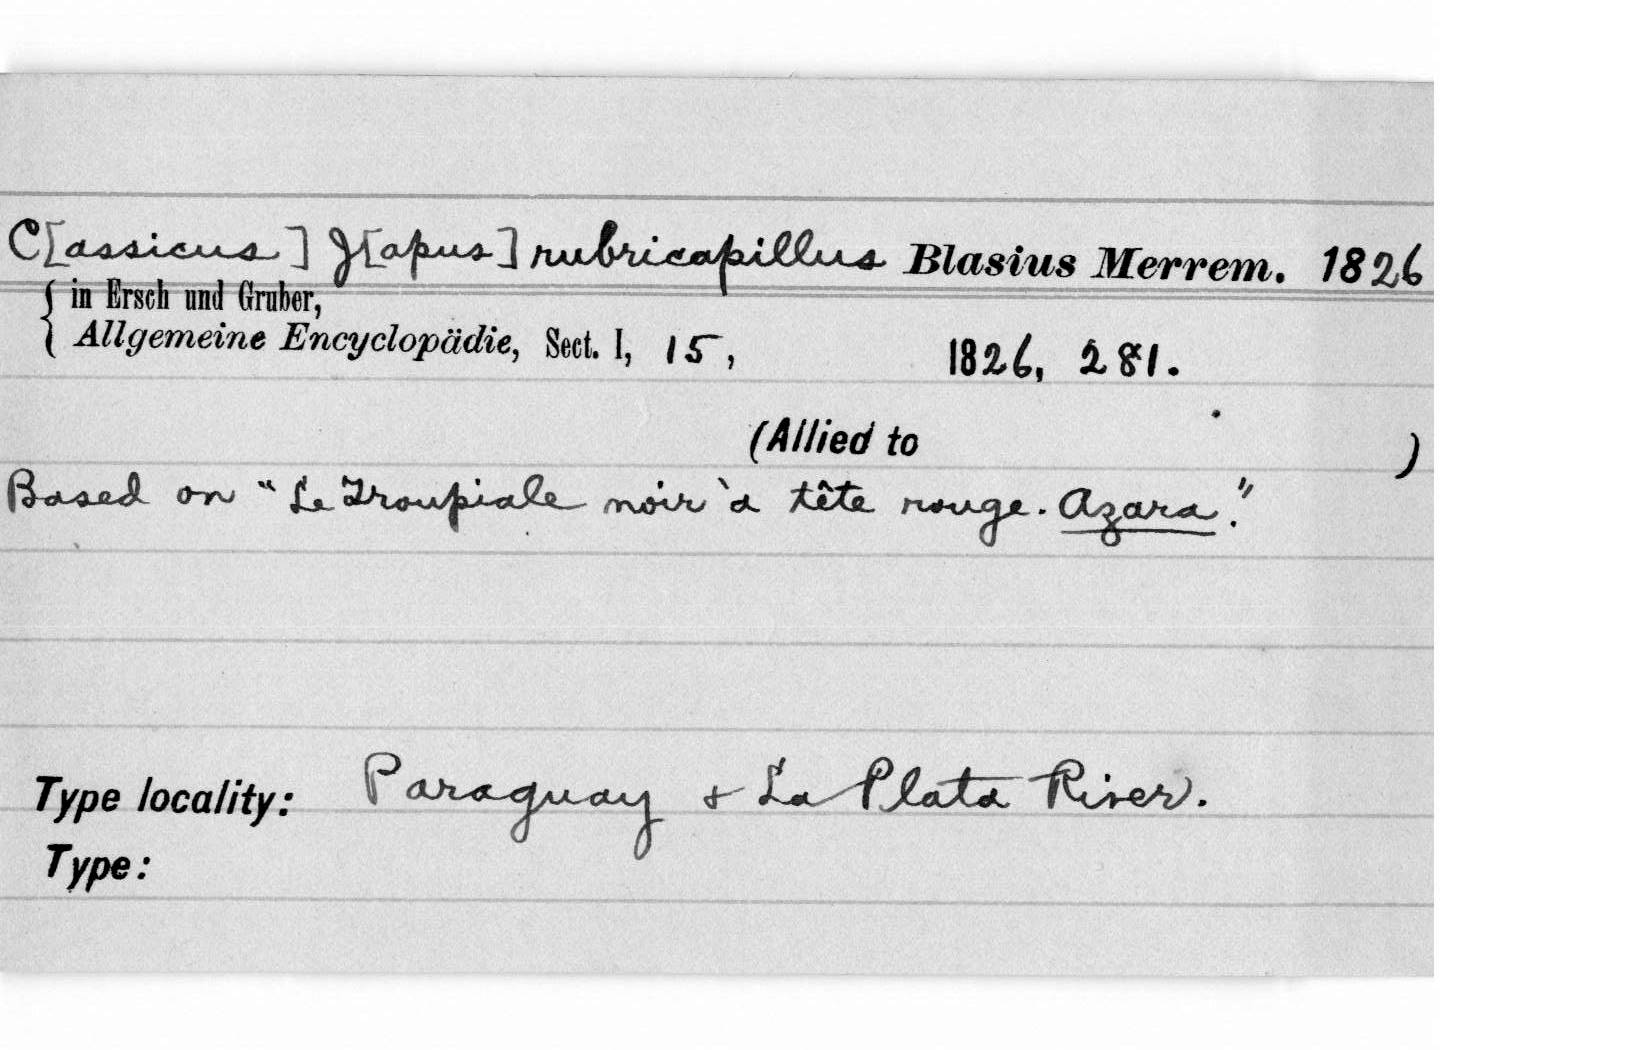 C[assicus] J[apus] rubricapillus Blasius Merrem. 1826
{ in Ersch und Gruber,
Allgemeine Encyclopädie, Sect. I, 15, 1826, 281.
(Allied to )
Based on "Le Troupiale noir à tête rouge. Azara."
Type locality: Paraguay & La Plata River.
Type: